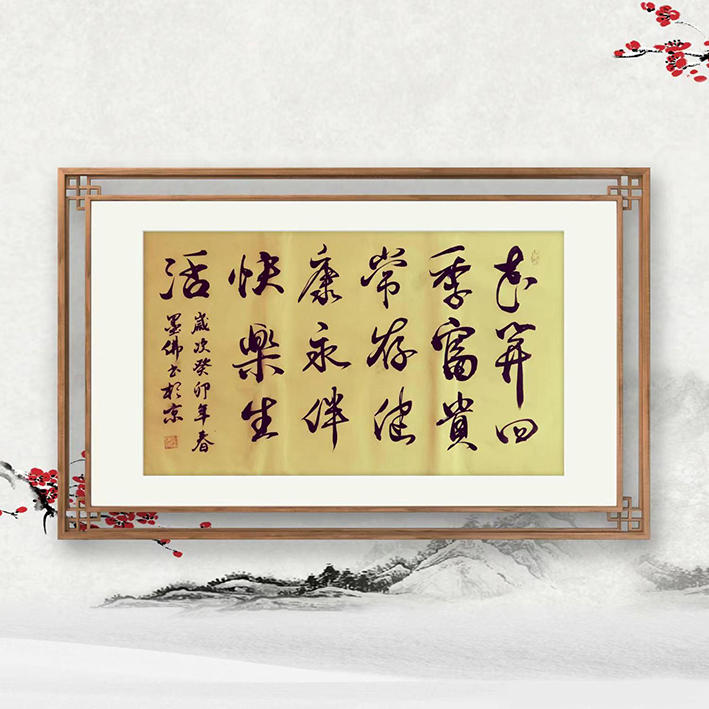 花開四
季富貴
常存健
康永伴
快樂生
活
歲次癸卯年春
墨佛書於京